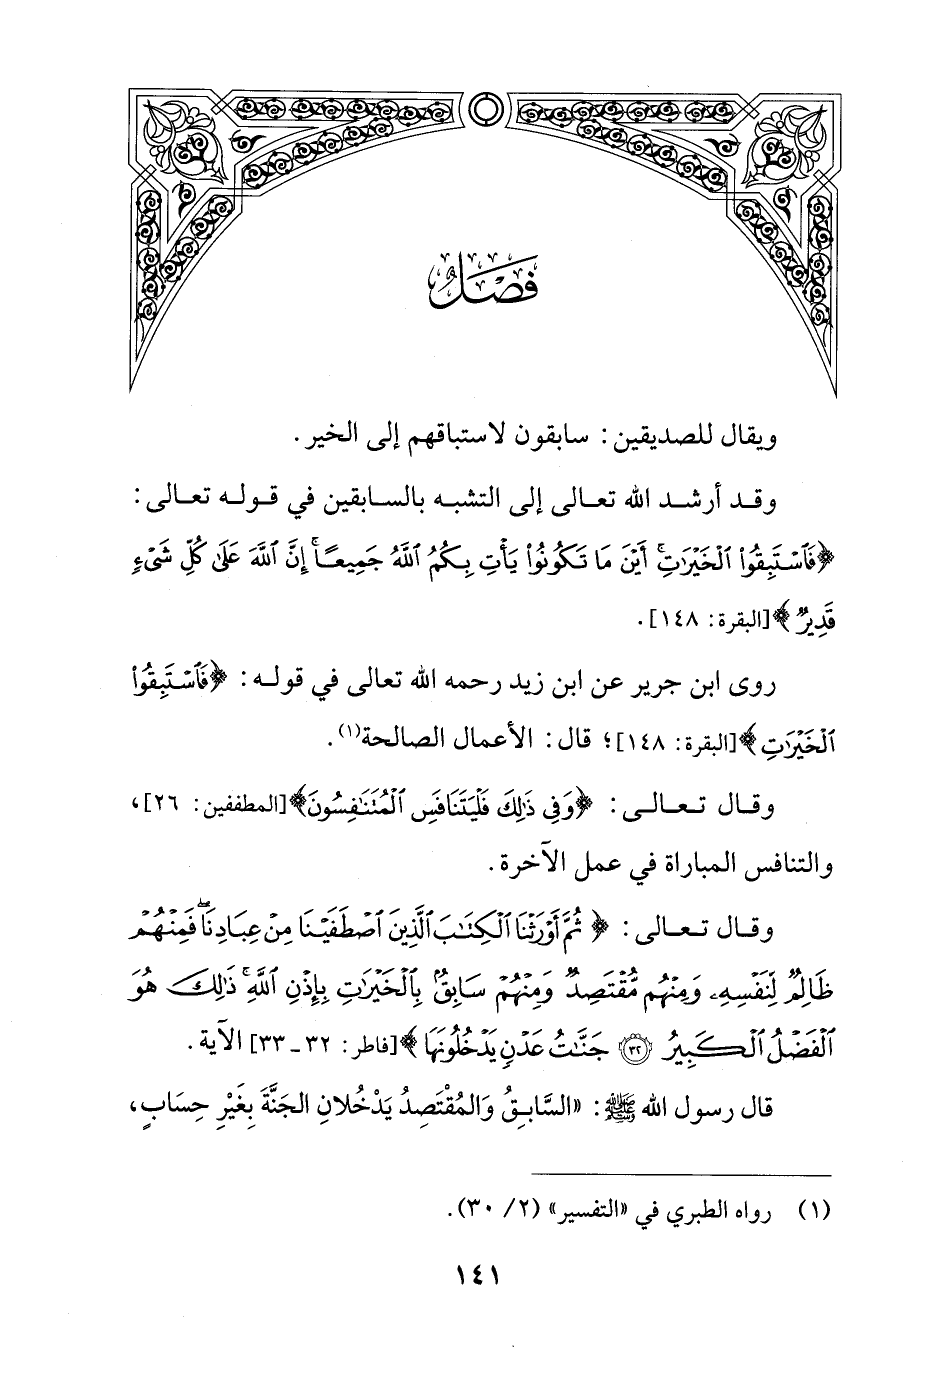 فَصْلٌ
ويقال للصديقين: سابقون لاستباقهم إلى الخير.
وقد أرشد الله تعالى إلى التشبه بالسابقين في قوله تعالى:
﴿فَٱسْتَبِقُوا۟ ٱلْخَيْرَٰتِ ۚ أَيْنَ مَا تَكُونُوا۟ يَأْتِ بِكُمُ ٱللَّهُ جَمِيعًا ۚ إِنَّ ٱللَّهَ عَلَىٰ كُلِّ شَىْءٍ
قَدِيرٌ﴾ [البقرة: ١٤٨].
روى ابن جرير عن ابن زيد رحمه الله تعالى في قوله: ﴿فَٱسْتَبِقُوا۟
ٱلْخَيْرَٰتِ﴾ [البقرة: ١٤٨]؛ قال: الأعمال الصالحة(١).
وقال تعالى: ﴿وَفِى ذَٰلِكَ فَلْيَتَنَافَسِ ٱلْمُتَنَٰفِسُونَ﴾ [المطففين: ٢٦]،
والتنافس المباراة في عمل الآخرة.
وقال تعالى: ﴿ثُمَّ أَوْرَثْنَا ٱلْكِتَٰبَ ٱلَّذِينَ ٱصْطَفَيْنَا مِنْ عِبَادِنَا ۖ فَمِنْهُمْ
ظَالِمٌ لِّنَفْسِهِۦ وَمِنْهُم مُّقْتَصِدٌ وَمِنْهُمْ سَابِقٌۢ بِٱلْخَيْرَٰتِ بِإِذْنِ ٱللَّهِ ۚ ذَٰلِكَ هُوَ
ٱلْفَضْلُ ٱلْكَبِيرُ ۝٣٢ جَنَّٰتُ عَدْنٍ يَدْخُلُونَهَا﴾ [فاطر: ٣٢ ـ ٣٣] الآية.
قال رسول الله ﷺ: «السَّابِقُ وَالمُقْتَصِدُ يَدْخُلانِ الجَنَّةَ بِغَيْرِ حِسَابٍ،
(١) رواه الطبري في «التفسير» (٢/ ٣٠).
١٤١